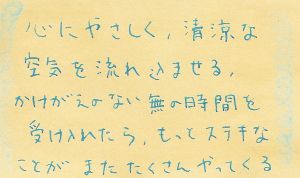 心にやさしく，清涼な
空気を流れ込ませる，
かけがえのない無の時間を
受け入れたら，もっとステキな
ことがまたたくさんやってくる